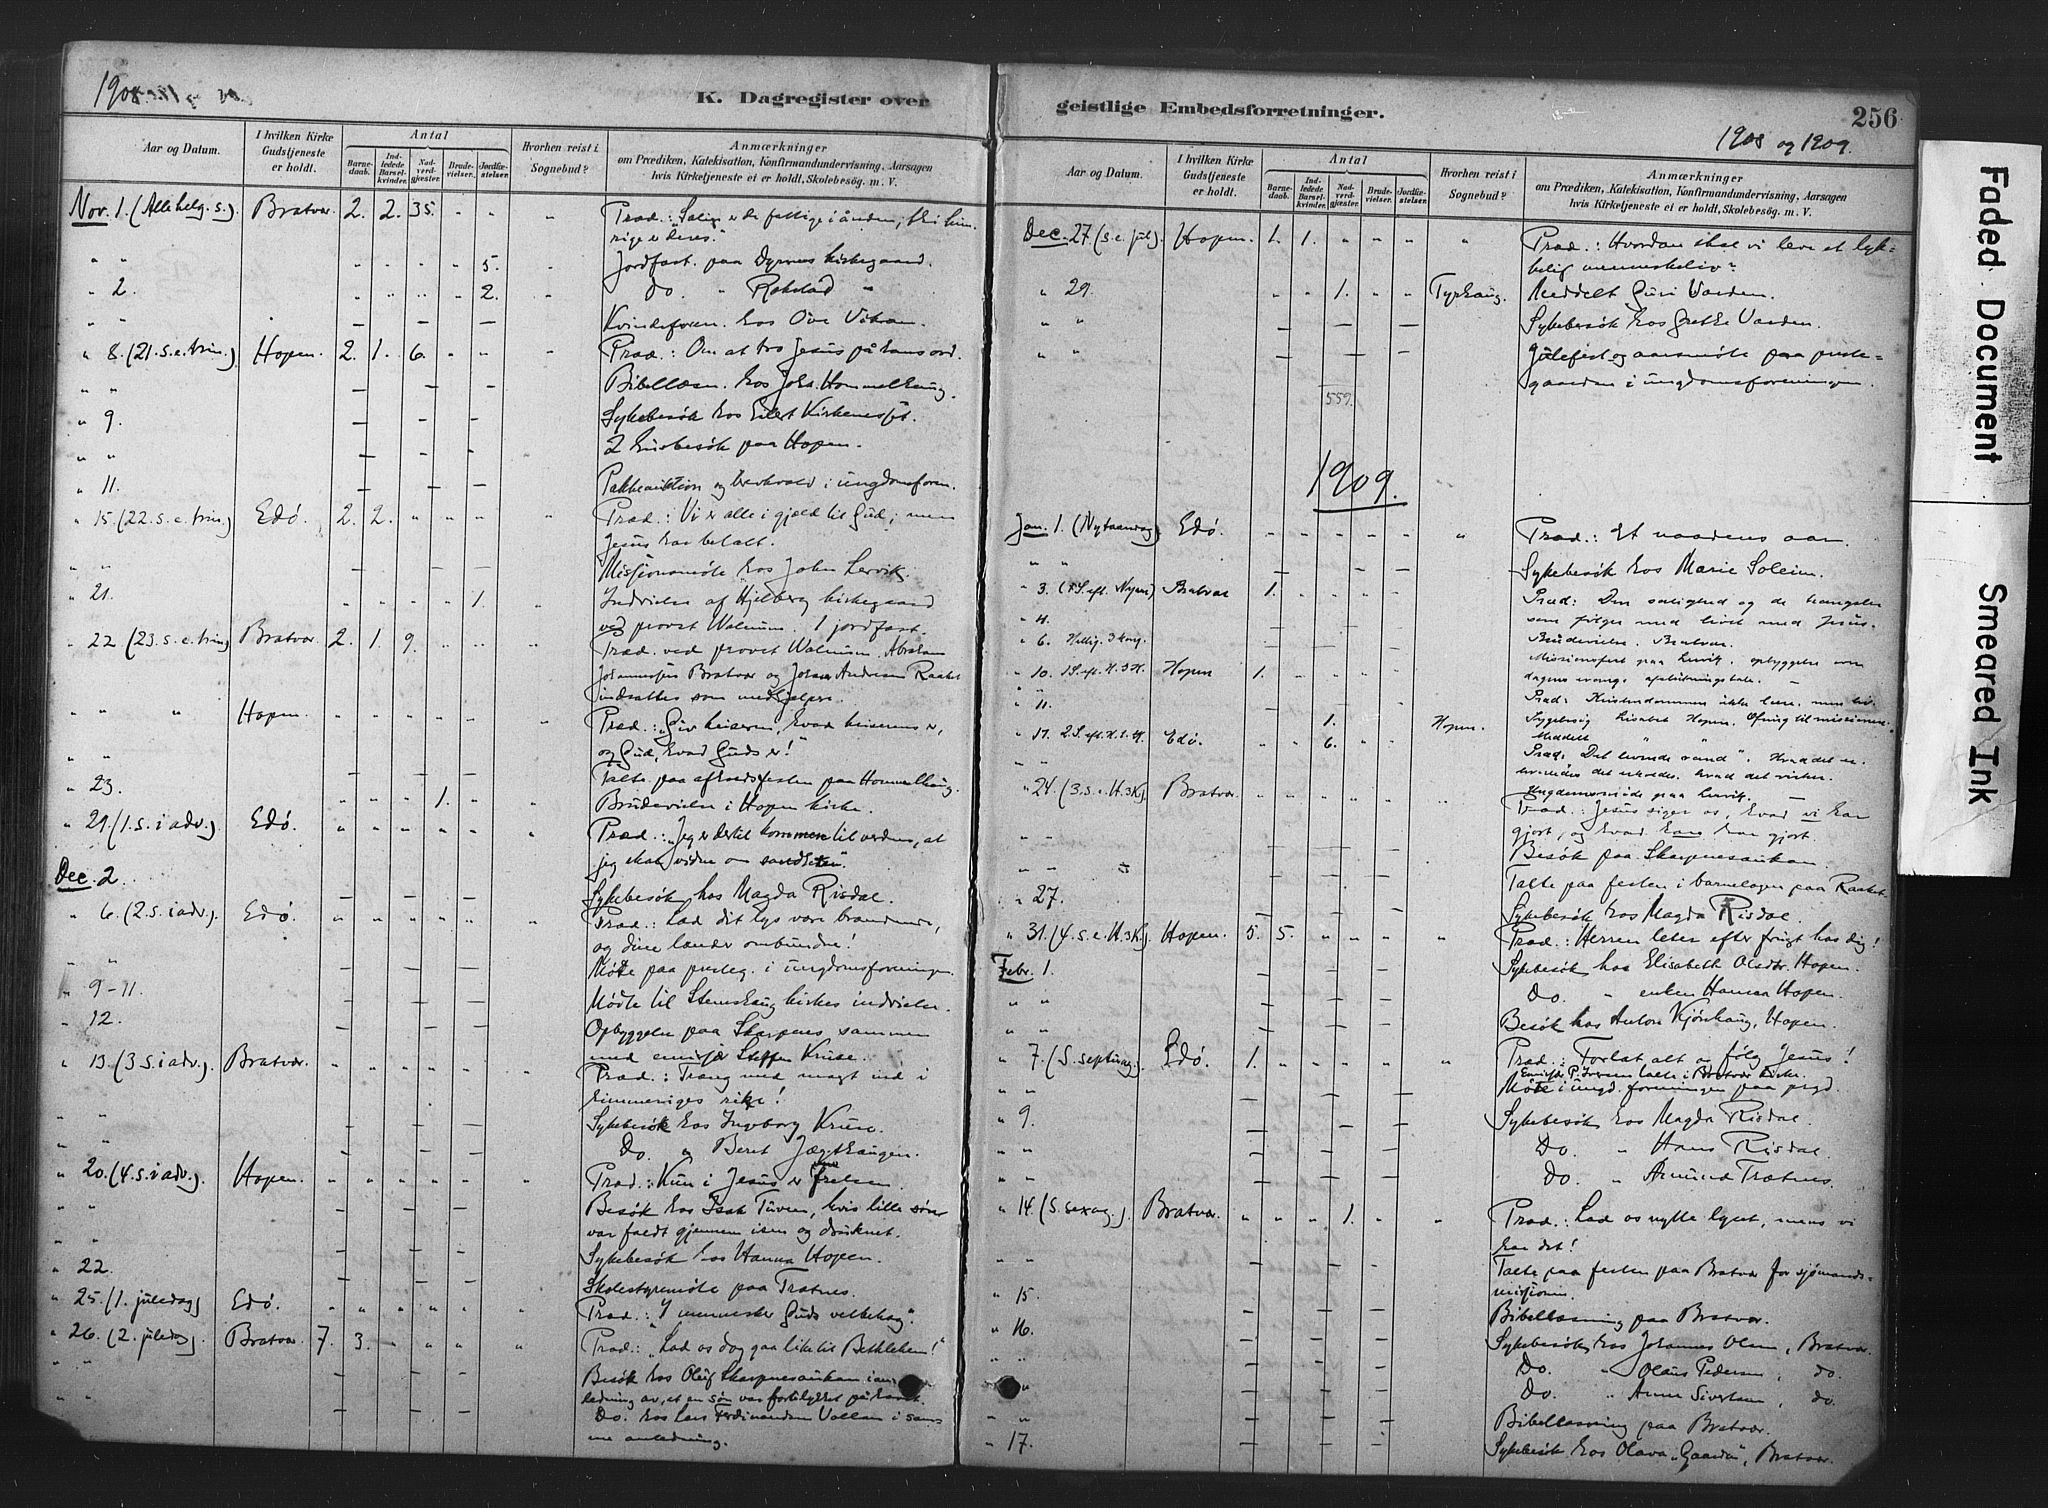 1908
K. Dagregister over
Aar og Datum.
I hvilken Kirke Gudstjeneste er holdt.
Antal
Barnedaab.
Indledede Barselkvinder.
Nadverdgjester.
Brudevielser.
Jordfæstelser.
Hvorhen reist i Sognebud?
Anmærkninger
om Prædiken, Katekisation, Konfirmandundervisning, Aarsagen
hvis Kirketjeneste ei er holdt, Skolebesøg. m. V.
Nov. 1. (Alle helg. s.). Bratvær 2. 2. 35. " " " Præd.: "Salige er de fattige i ånden, thi him-
rige er deres."
" " 5. " Jordfast. paa Dyrnes kirkegaard.
" 2. " " " " 2. " do. " Rokstad "
" " — — — Kvindeforen. hos Ove Vikan.
" 8. (21. s. e. trin.) Hopen. 2. 1. 6. " " " Præd.: Om at tro Jesus på hans ord.
" " — — — Bibellæsn. hos Johs. Hommelhaug.
" 9. — — — Sykebesøk hos Eilert Kirkenesset.
" " — — — 2 husbesøk paa Hopen.
" 11. — — — Pakkeauktion og i ungdomsforen.
" 15. (22. s. e. trin.) Edø. 2. 2. " " " " Præd.: Vi er alle i gjæld til Gud; men
Jesus har betalt.
" " — — — Missionsmøte hos John Lervik.
" 21. 1. " Indvielse af Hjelberg kirkegaard
ved provst Walnum. 1 jordfast.
" 22 (23. s. e. trin) Bratvær. 2. 1. 9. " " " Præd. ved provst Walnum. Abraham
Johannessen Bratvær og Johan Andersen Raaket
indsattes som medhjelpere.
" " " Hopen. " " " " " " Præd.: "Giv keiseren, hvad keiserens er,
og Gud, hvad Guds er!"
" " — — — Talte paa afskedsfesten paa Hommelhaug.
" 23. 1. " " Brudevielse i Hopen kirke.
" 29. (1. s. i adv.) Edø. " " " " " " Præd.: "Jeg er dertil kommen til verden, at
jeg skal vidne om sandheten".
Dec. 2. — — — Sykebesøk hos Magda Risdal.
" 6. (2. s. i adv.). Edø. " " " " " " Præd.: Lad dit lys være brændende,
og dine lænder ombundne!
" " — — — Møte paa presteg. i ungdomsforeningen.
" 9-11. — — — Møtte til Stemshaug kirkes indvielse.
" 12. — — — Opbyggelse paa Skarpnes sammen
med emissær Steffen Kruse.
" 13. (3 s. i adv.). Bratvær. " " " " " " Præd.: Træng med magt ind i
himmeriges rike!
" " — — — Sykebesøk hos Ingeborg Kruse.
" " — — — Do. " Beret Jægthaugen.
" 20. (4. s. i adv.). Hopen. " " " " " " Præd.: Kun i Jesus er frelsen.
" " — — — Besøk hos Isak Tuven, hvis lille søn
var faldt gjennem isen og druknet.
" " — — — Sykebesøk hos Hanna Hopen.
" 22. — — — Skolestyremøte paa Trætnes.
" 25. (1. juledag) Edø. " " " " " " Præd.: "I mennesker Guds velbehag".
" 26. (2. juledag). Bratvær. 7. 3. " " " " Præd.: "Lad os dog gaa like til Bethlehem!"
" " — — — Besøk hos Oluf Skarpnesaukan i an-
ledning av, at en søn var forulykket på havet.
" " — — — Do. hos Lars Ferdinandsen Vollan i sam-
me anledning.
geistlige Embedsforretninger.
256
1908 og 1909.
Aar og Datum.
I hvilken Kirke Gudstjeneste er holdt.
Antal
Barnedaab.
Indledede Barselkvinder.
Nadverdgjester.
Brudevielser.
Jordfæstelser.
Hvorhen reist i Sognebud?
Anmærkninger
om Prædiken, Katekisation, Konfirmandundervisning, Aarsagen
hvis Kirketjeneste ei er holdt, Skolebesøg. m. V.
Dec. 27 (s. e. jul). Hopen. 1. 1. " " " " Præd.: Hvordan skal vi leve et lyk-
kelig menneskeliv?
" 29. " " 1. " " Tyrhaug. Meddelt Guri Vorden.
" " — — — Sykebesøk hos Grethe Varden.
" " — — — Julefest og aarsmøte paa preste-
gaarden i ungdomsforeningen.
559.
1909.
Jan. 1. (Nytaarsdag). Edø. " " " " " " Præd.: Et naadens aar.
" " — — — Sykebesøk hos Marie Soleim.
" 3. (1 S. eft. Nyaar) Bratvær 1. Præd: Den salighed og de trængsler
som følger med livet med Jesus.
" 4. Brudevielse. Bratvær.
" 6. Hellig 3 kong. Missionsfest paa Lervik. opbyggelse over
dagens evang. afslutningstale.
" 10. 1 S. eft. H. 3 K. Hopen 1. Præd: Kristendommen ikke lære, men liv.
" 11. 1. Hopen. Sygebesøg Lisabet Hopen. Ofring til missionen.
Meddelt
" 17. 2 S. eft. H. 3. K. Edø. " " 6. " " Præd: "Det levende vand". Hvad det er.
hvorledes det erholdes. hvad det virker.
" " Ungdomsmøde paa Lervik.
" 24. (3. s. e. H. 3 K). Bratvær. " " " " " " Præd.: Jesus siger os, hvad vi har
gjort, og hvad han har gjort.
" " — — — Besøk paa Skarpnesaukan.
" " — — — Talte paa festen i barnelogen paa Raaket.
" 27. — — — Sykebesøk hos Magda Risdal.
" 31. (4. s. e. H. 3 K). Hopen. 5. 5. " " " " Præd.: Herren leter efter frugt hos dig!
Febr. 1. — — — Sykebesøk hos Elisabeth Olsdtr. Hopen.
" " — — — Do. " enken Hanna Hopen.
" " — — — Besøk hos Anton Kjønhaug, Hopen.
" 7. (S. septuag.). Edø. 1. " Præd.: Forlat alt og følg Jesus!
Emissær P. Iversen talte i Bratvær kirke.
" " — — — Møte i ungd. foreningen paa prgd.
" 9. — — — Sykebesøk hos Magda Risdal.
" " — — — Do. " Hans Risdal.
" " — — — Do. " Amund Trætnes.
" 14. (S. sexag.). Bratvær. " " 1. " " " Præd.: Lad os nytte lyset, mens vi
har det!
" " — — — Talte paa festen paa Bratvær for sjømands-
missionen.
" 15. — — — Bibellæsning paa Bratvær.
" 16. — — — Sykebesøk hos Johannes Olsen, Bratvær.
" " — — — Do. " Olaus Pedersen, do.
" " — — — Do. " Anne Sivertsen, do.
" " — — — Bibellæsning paa Bratvær.
" 17. — — — Sykebesøk hos Olava "Gaarden", Bratvær.
Faded Document
Smeared Ink